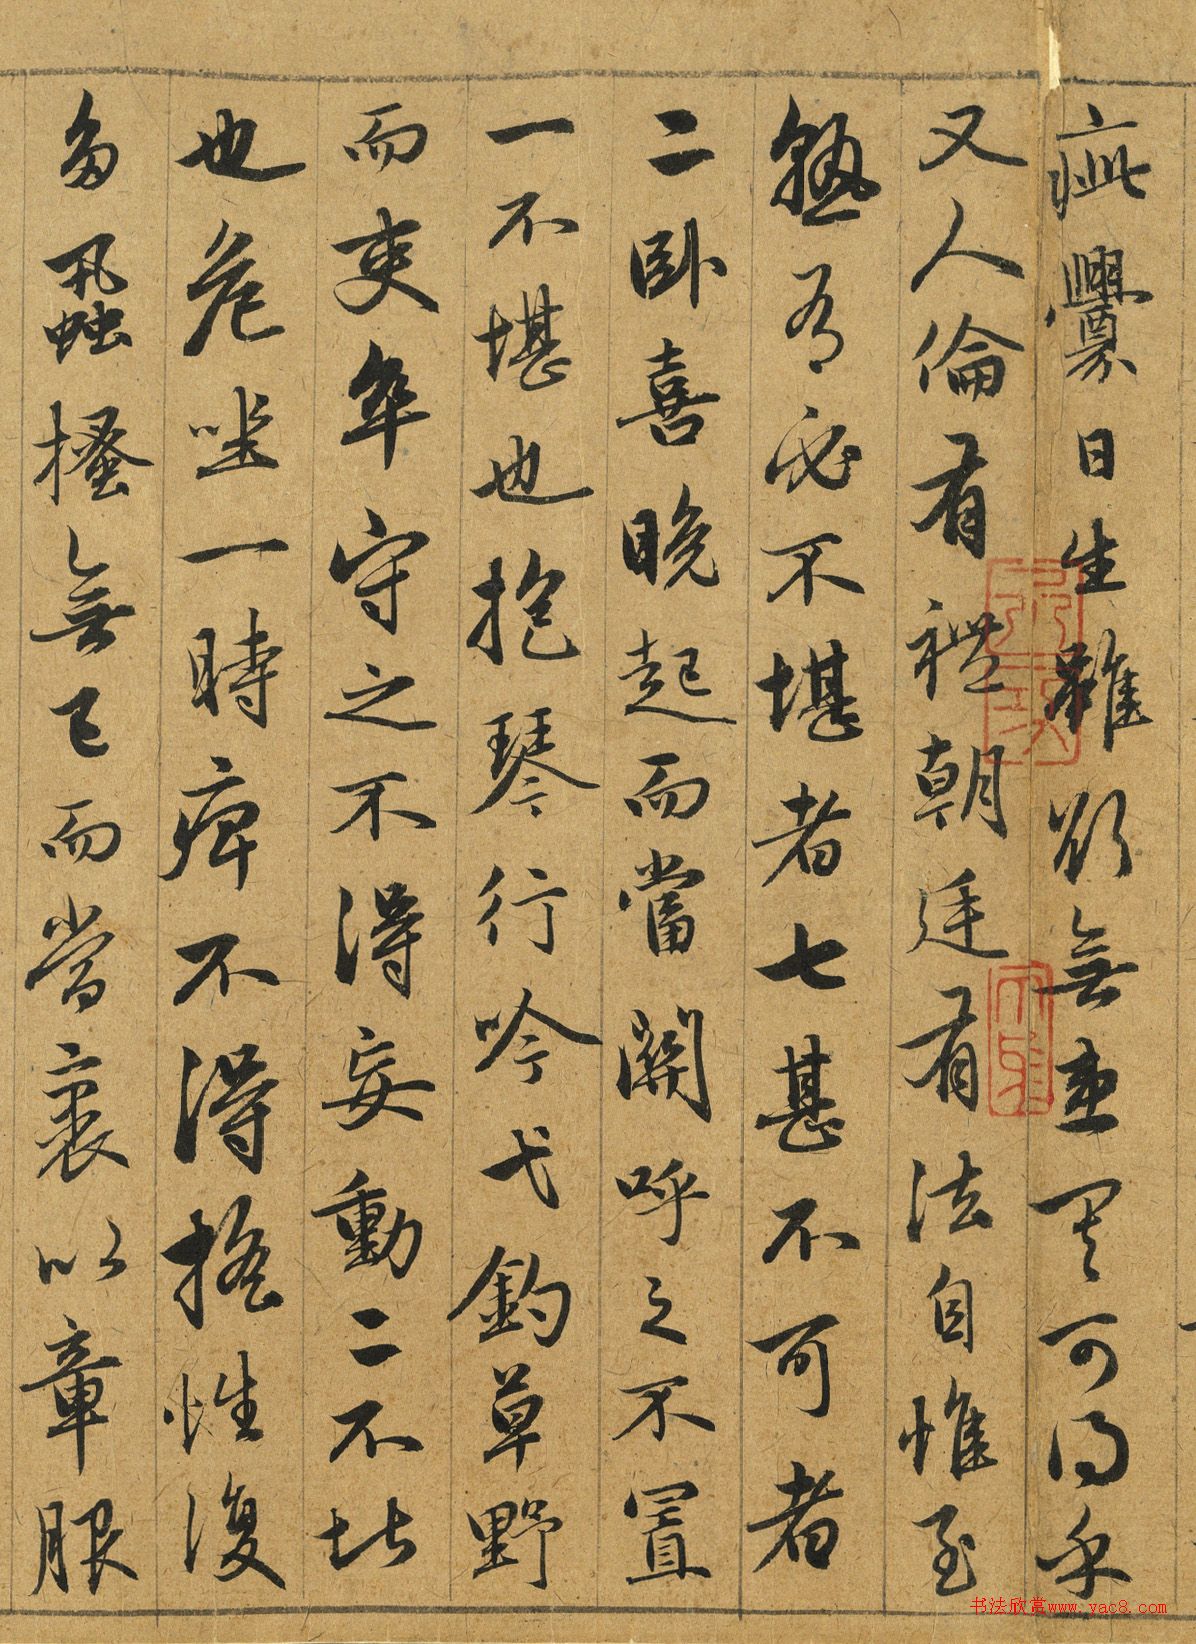 疵釁日生雖欲無患其可得乎
又人倫有禮朝廷有法自惟至
熟有必不堪者七甚不可者
二卧喜晚起而當關呼之不置
一不堪也抱琴行吟弋釣草野
而吏卒守之不得妄動二不堪
也危坐一時痺不得搖性復
多蝨搔無已而當裹以章服
书法欣赏www.yac8.com